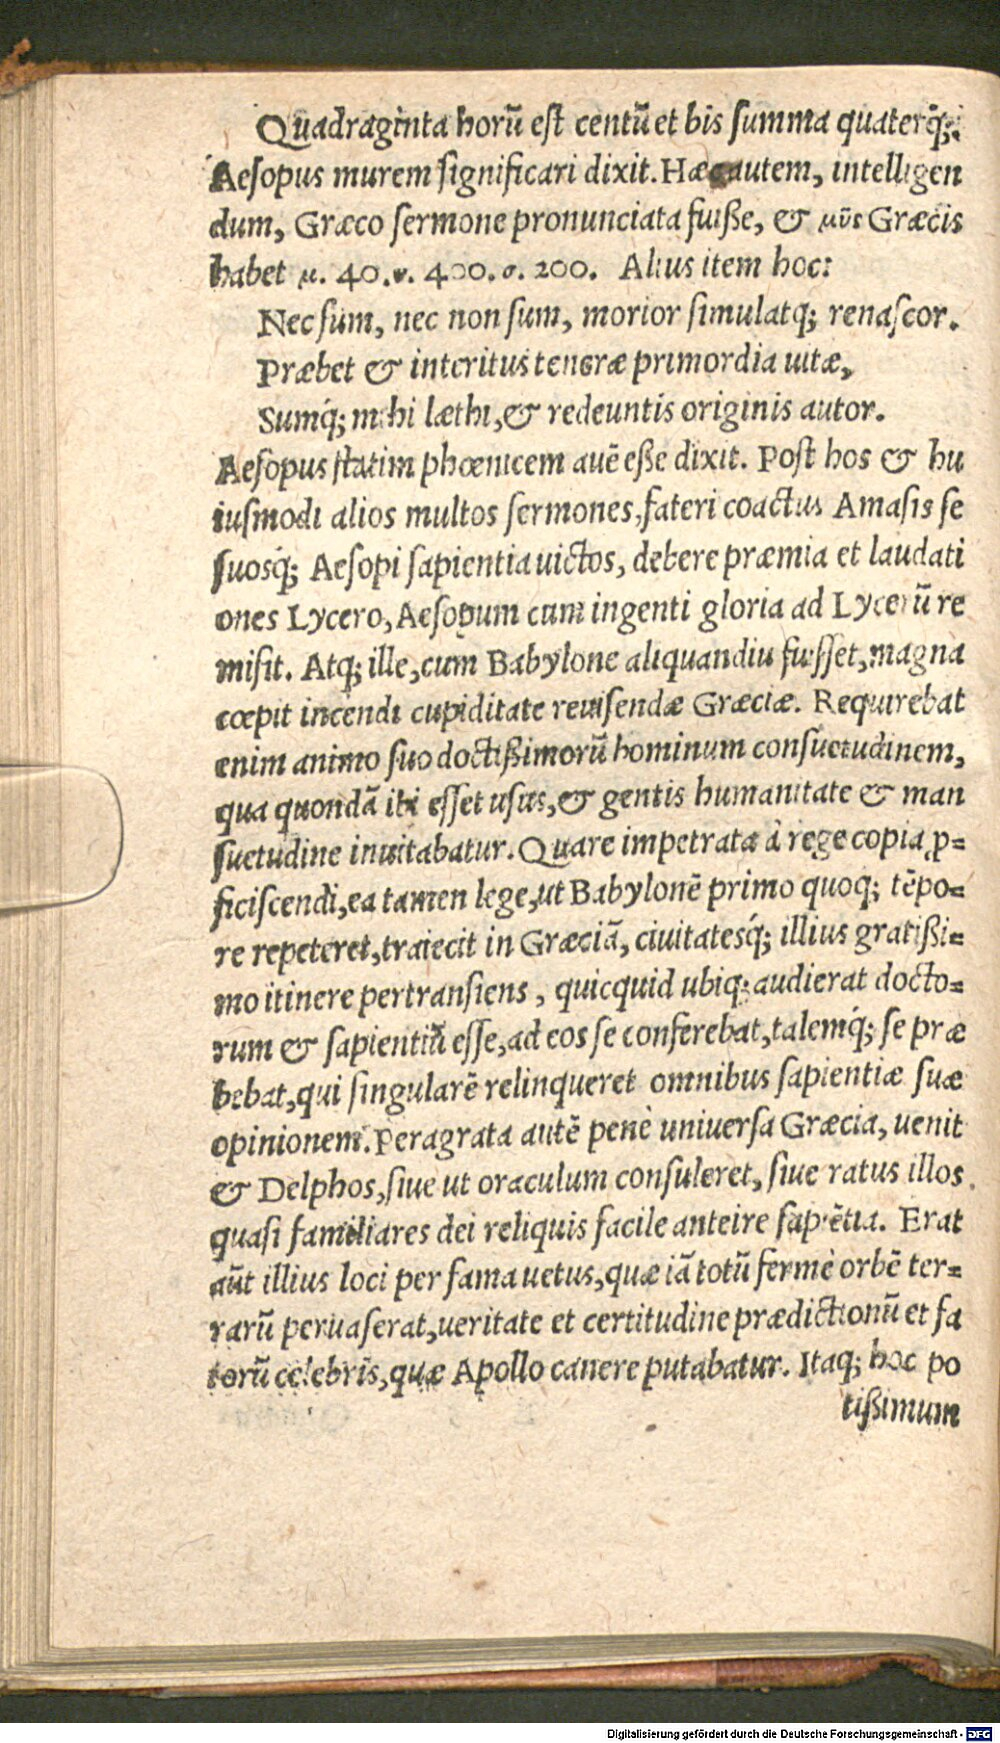 Quadraginta horū eſt centū et bis ſumma quaterq́;:
Aeſopus murem ſignificari dixit. Hæc autem, intelligen
dum, Græco ſermone pronunciata fuiße, & μῦς Græcis
habet μ. 40. υ. 400. σ. 200. Alius item hoc:
Nec ſum, nec non ſum, morior ſimulatq; renaſcor.
Præbet & interitus teneræ primordia uitæ,
Sumq́; mihi læthi, & redeuntis originis autor.
Aeſopus ſtatim phœnicem auē eße dixit. Poſt hos & hu
iuſmodi alios multos ſermones, fateri coactus Amaſis ſe
ſuosq́; Aeſopi ſapientia uictos, debere præmia et laudati
ones Lycero, Aeſopum cum ingenti gloria ad Lycerū re
miſit. Atq; ille, cum Babylone aliquandiu fuiſſet, magna
cœpit incendi cupiditate reuiſendæ Græciæ. Requirebat
enim animo ſuo doctißimorū hominum conſuetudinem,
qua quondā ibi eſſet uſus, & gentis humanitate & man
ſuetudine inuitabatur. Quare impetrata à rege copia ꝓ-
ficiſcendi, ea tamen lege, ut Babylonē primo quoq; tēpo-
re repeteret, traiecit in Græciā, ciuitatesq́; illius gratißi-
mo itinere pertranſiens, quicquid ubiq; audierat docto-
rum & ſapientiū eſſe, ad eos ſe conferebat, talemq́; ſe præ
bebat, qui ſingularē relinqueret omnibus ſapientiæ ſuæ
opinionem. Peragrata autē penè uniuerſa Græcia, uenit
& Delphos, ſiue ut oraculum conſuleret, ſiue ratus illos
quaſi familiares dei reliquis facile anteire ſapiētia. Erat
aūt illius loci per fama uetus, quæ iā totū fermè orbē ter-
rarū peruaſerat, ueritate et certitudine prædictionū et fa
torū celebris, quæ Apollo canere putabatur. Itaq; hoc po
tißimum
Digitalisierung gefördert durch die Deutsche Forschungsgemeinschaft - DFG